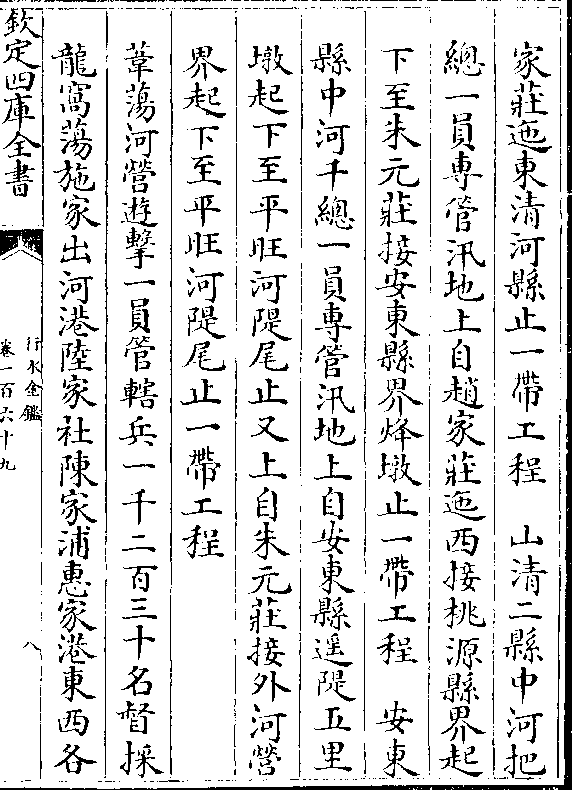 家莊迤東清河縣止一帶工程　山清二縣中河把
總一員專管汛地上自趙家莊迤西接桃源縣界起
下至朱元莊接安東縣界烽墩止一帶工程　安東
縣中河千總一員專管汛地上自安東縣遥隄五里
墩起下至平旺河隄尾止又上自朱元莊接外河營
界起下至平旺河隄尾止一帶工程
葦蕩河營遊擊一員管轄兵一千二百三十名督採
龍窩蕩施家出河港陸家社陳家浦惠家港東西各
欽定四庫全書
行水金鑑
卷一百六十九
八